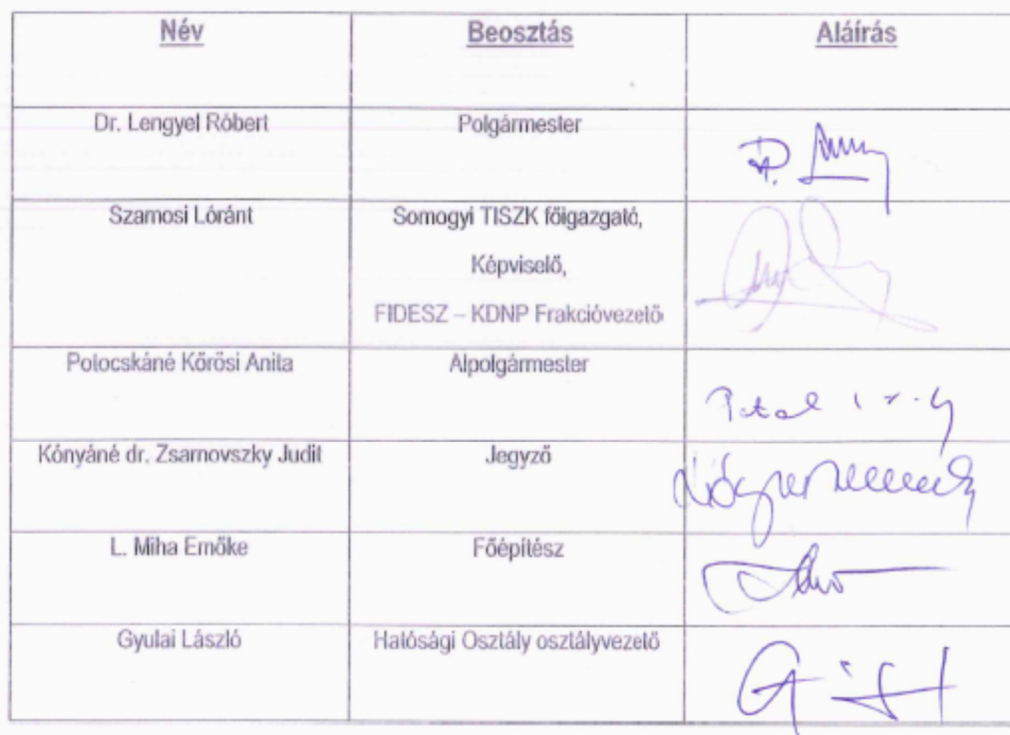 Név Beosztás Aláírás
Dr. Lengyel Róbert Polgármester
Szamosi Lóránt Somogyi TISZK főigazgató,
Képviselő,
FIDESZ – KDNP Frakcióvezető
Polocskáné Kőrösi Anita Alpolgármester
Kónyáné dr. Zsarnovszky Judit Jegyző
L. Miha Emőke Főépítész
Gyulai László Hatósági Osztály osztályvezető